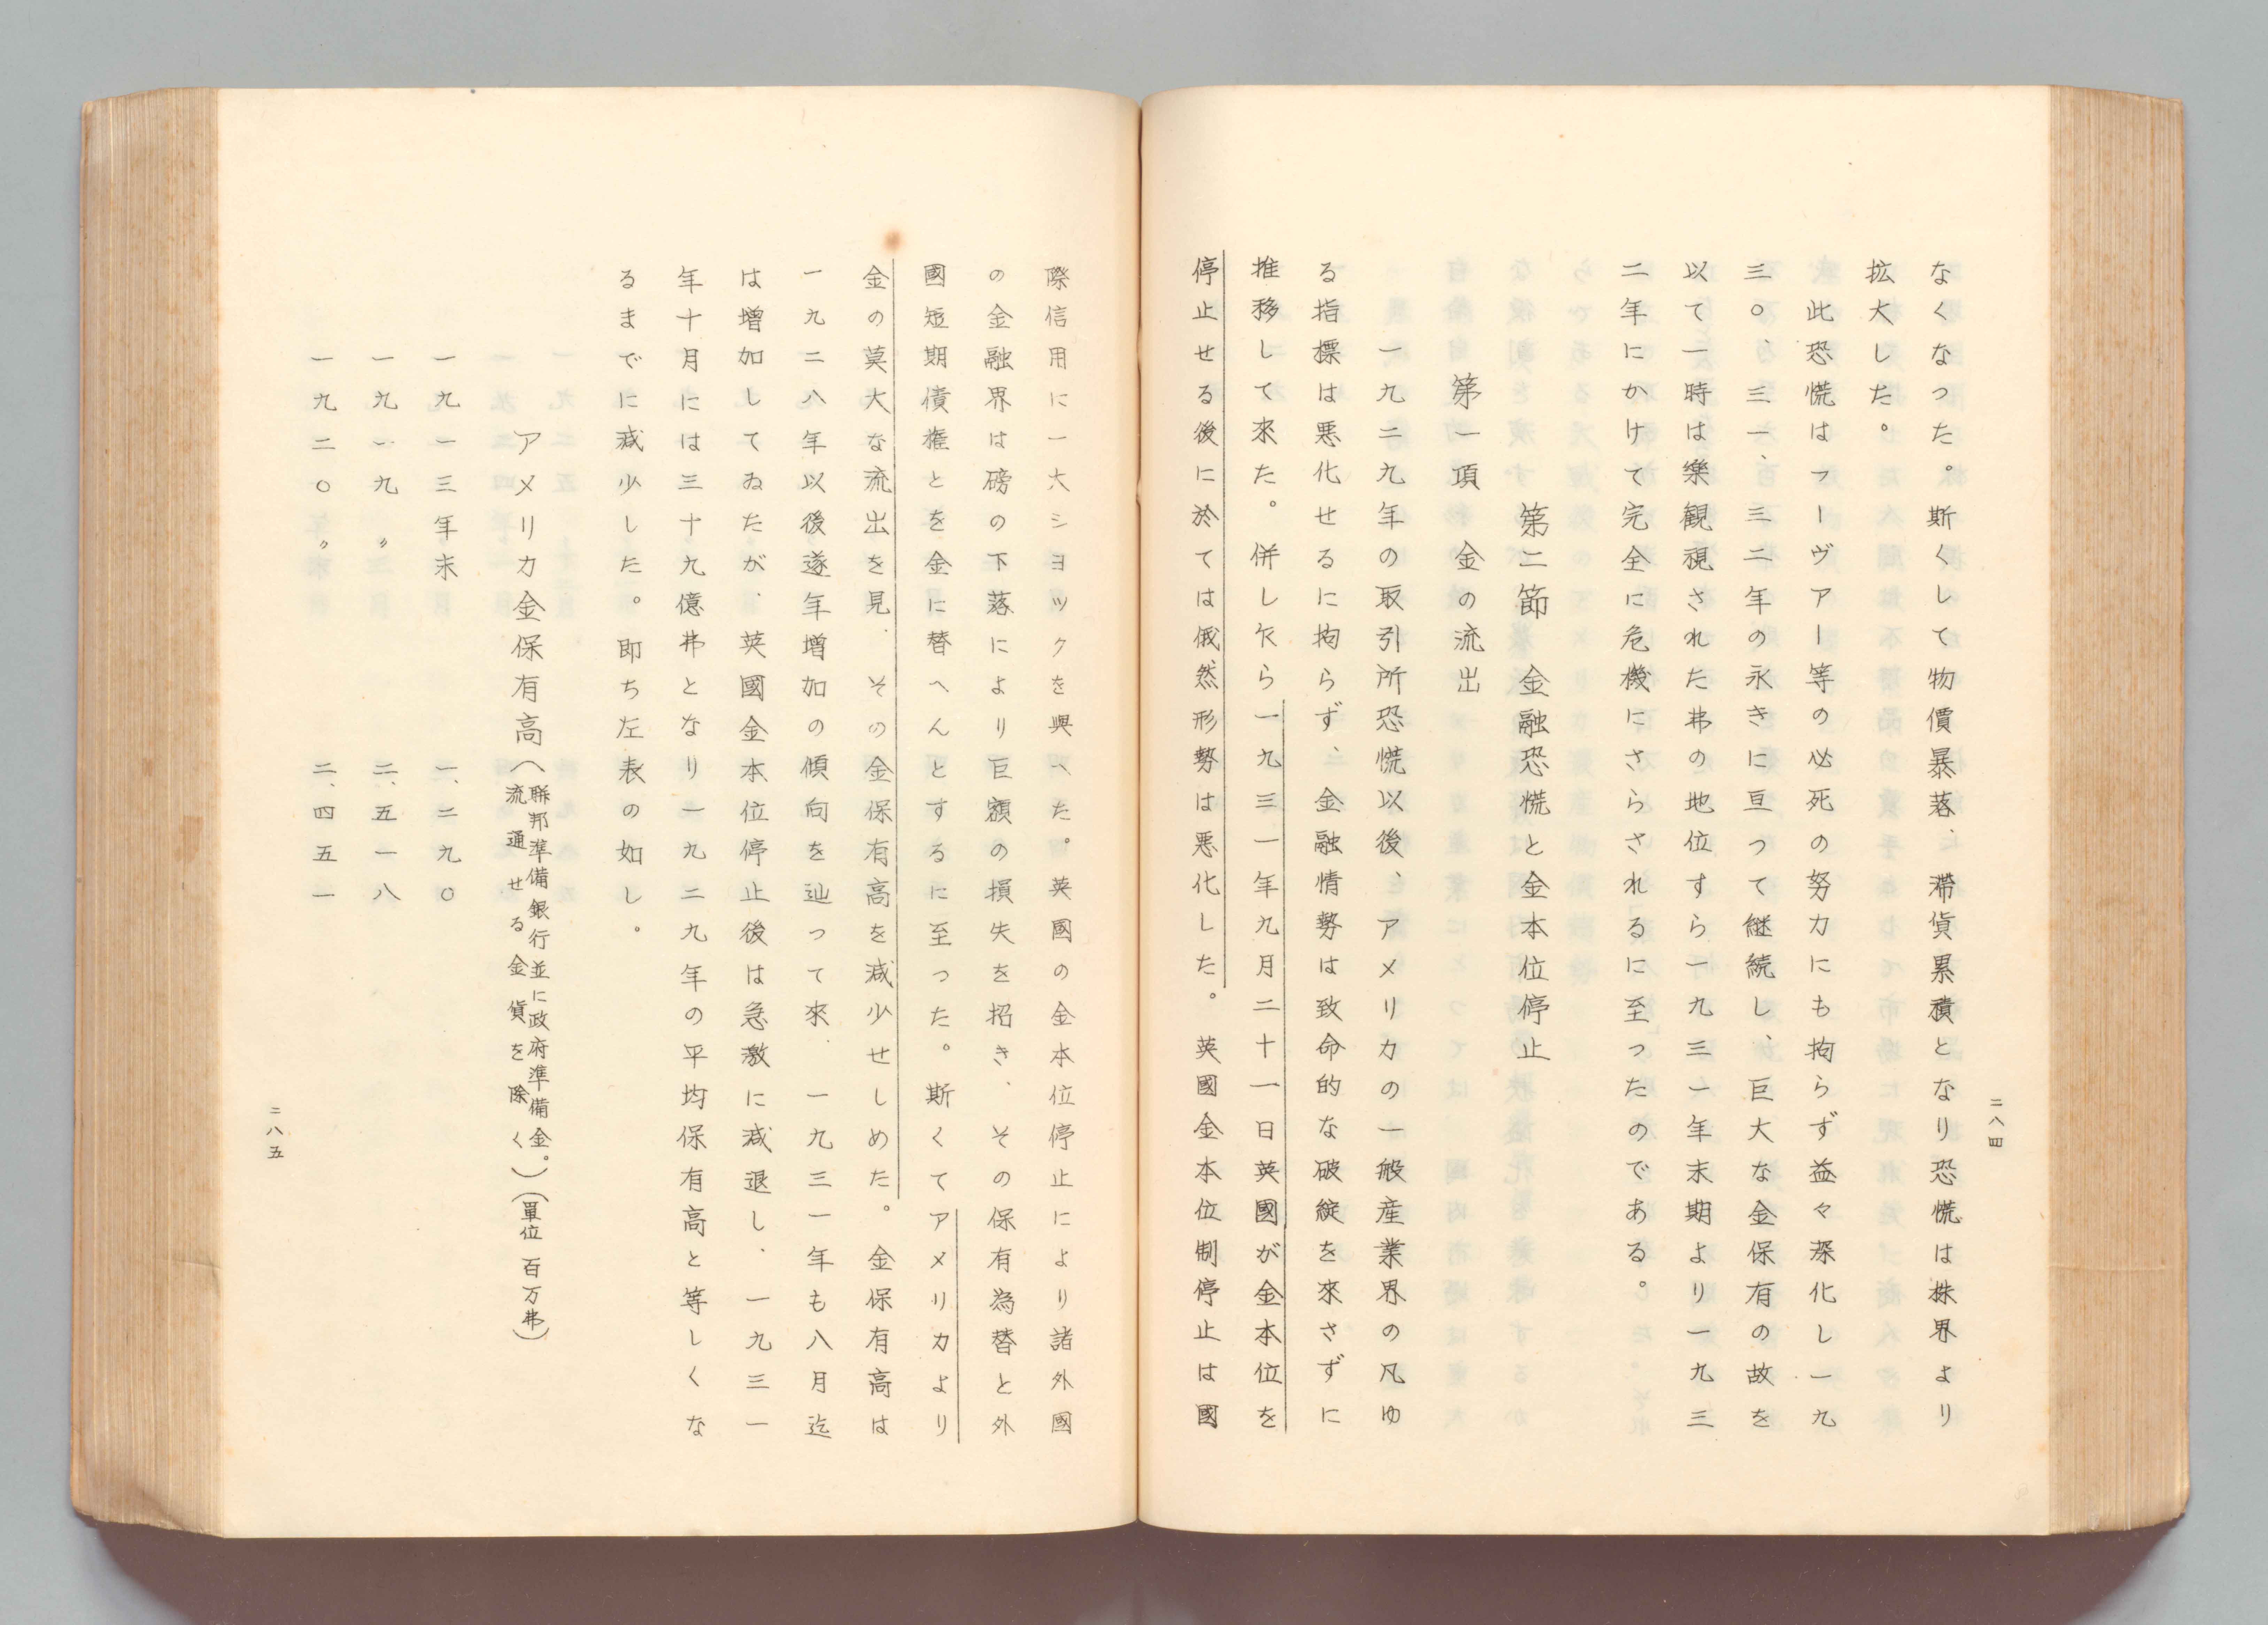 二八四
なくなった。斯くして物價暴落、滞貨累積となり恐慌は株界より
拡大した。
此恐慌はフーヴァー等の必死の努力にも拘らず益々深化し一九
三〇、三一、三二年の永きに亘って継続し、巨大な金保有の故を
以て一時は樂観視された弗の地位すら一九三一年末期より一九三
二年にかけて完全に危機にさらされるに至ったのである。
第二節 金融恐慌と金本位停止
第一項 金の流出
一九二九年の取引所恐慌以後、アメリカの一般産業界の凡ゆ
る指標は悪化せるに拘らず、金融情勢は致命的な破綻を來さずに
推移して來た。併し乍ら一九三一年九月二十一日英國が金本位を
停止せる後に於ては俄然形勢は悪化した。英國金本位制停止は國
際信用に一大ショックを興へた。英國の金本位停止により諸外國
の金融界は磅の下落により巨額の損失を招き、その保有為替と外
國短期債権とを金に替へんとするに至った。斯くてアメリカより
金の莫大な流出を見、その金保有高を減少せしめた。金保有高は
一九二八年以後逐年増加の傾向を辿って來、一九三一年も八月迄
は増加してゐたが、英國金本位停止後は急激に減退し、一九三一
年十月には三十九億弗となり一九二九年の平均保有高と等しくな
るまでに減少した。即ち左表の如し。
アメリカ金保有高（聯邦準備銀行並に政府準備金。流通せる金貨を除く）（單位 百万弗）
一九一三年末 一、二九〇
一九一九〃 二、五一八
一九二〇〃 二、四五一
二八五